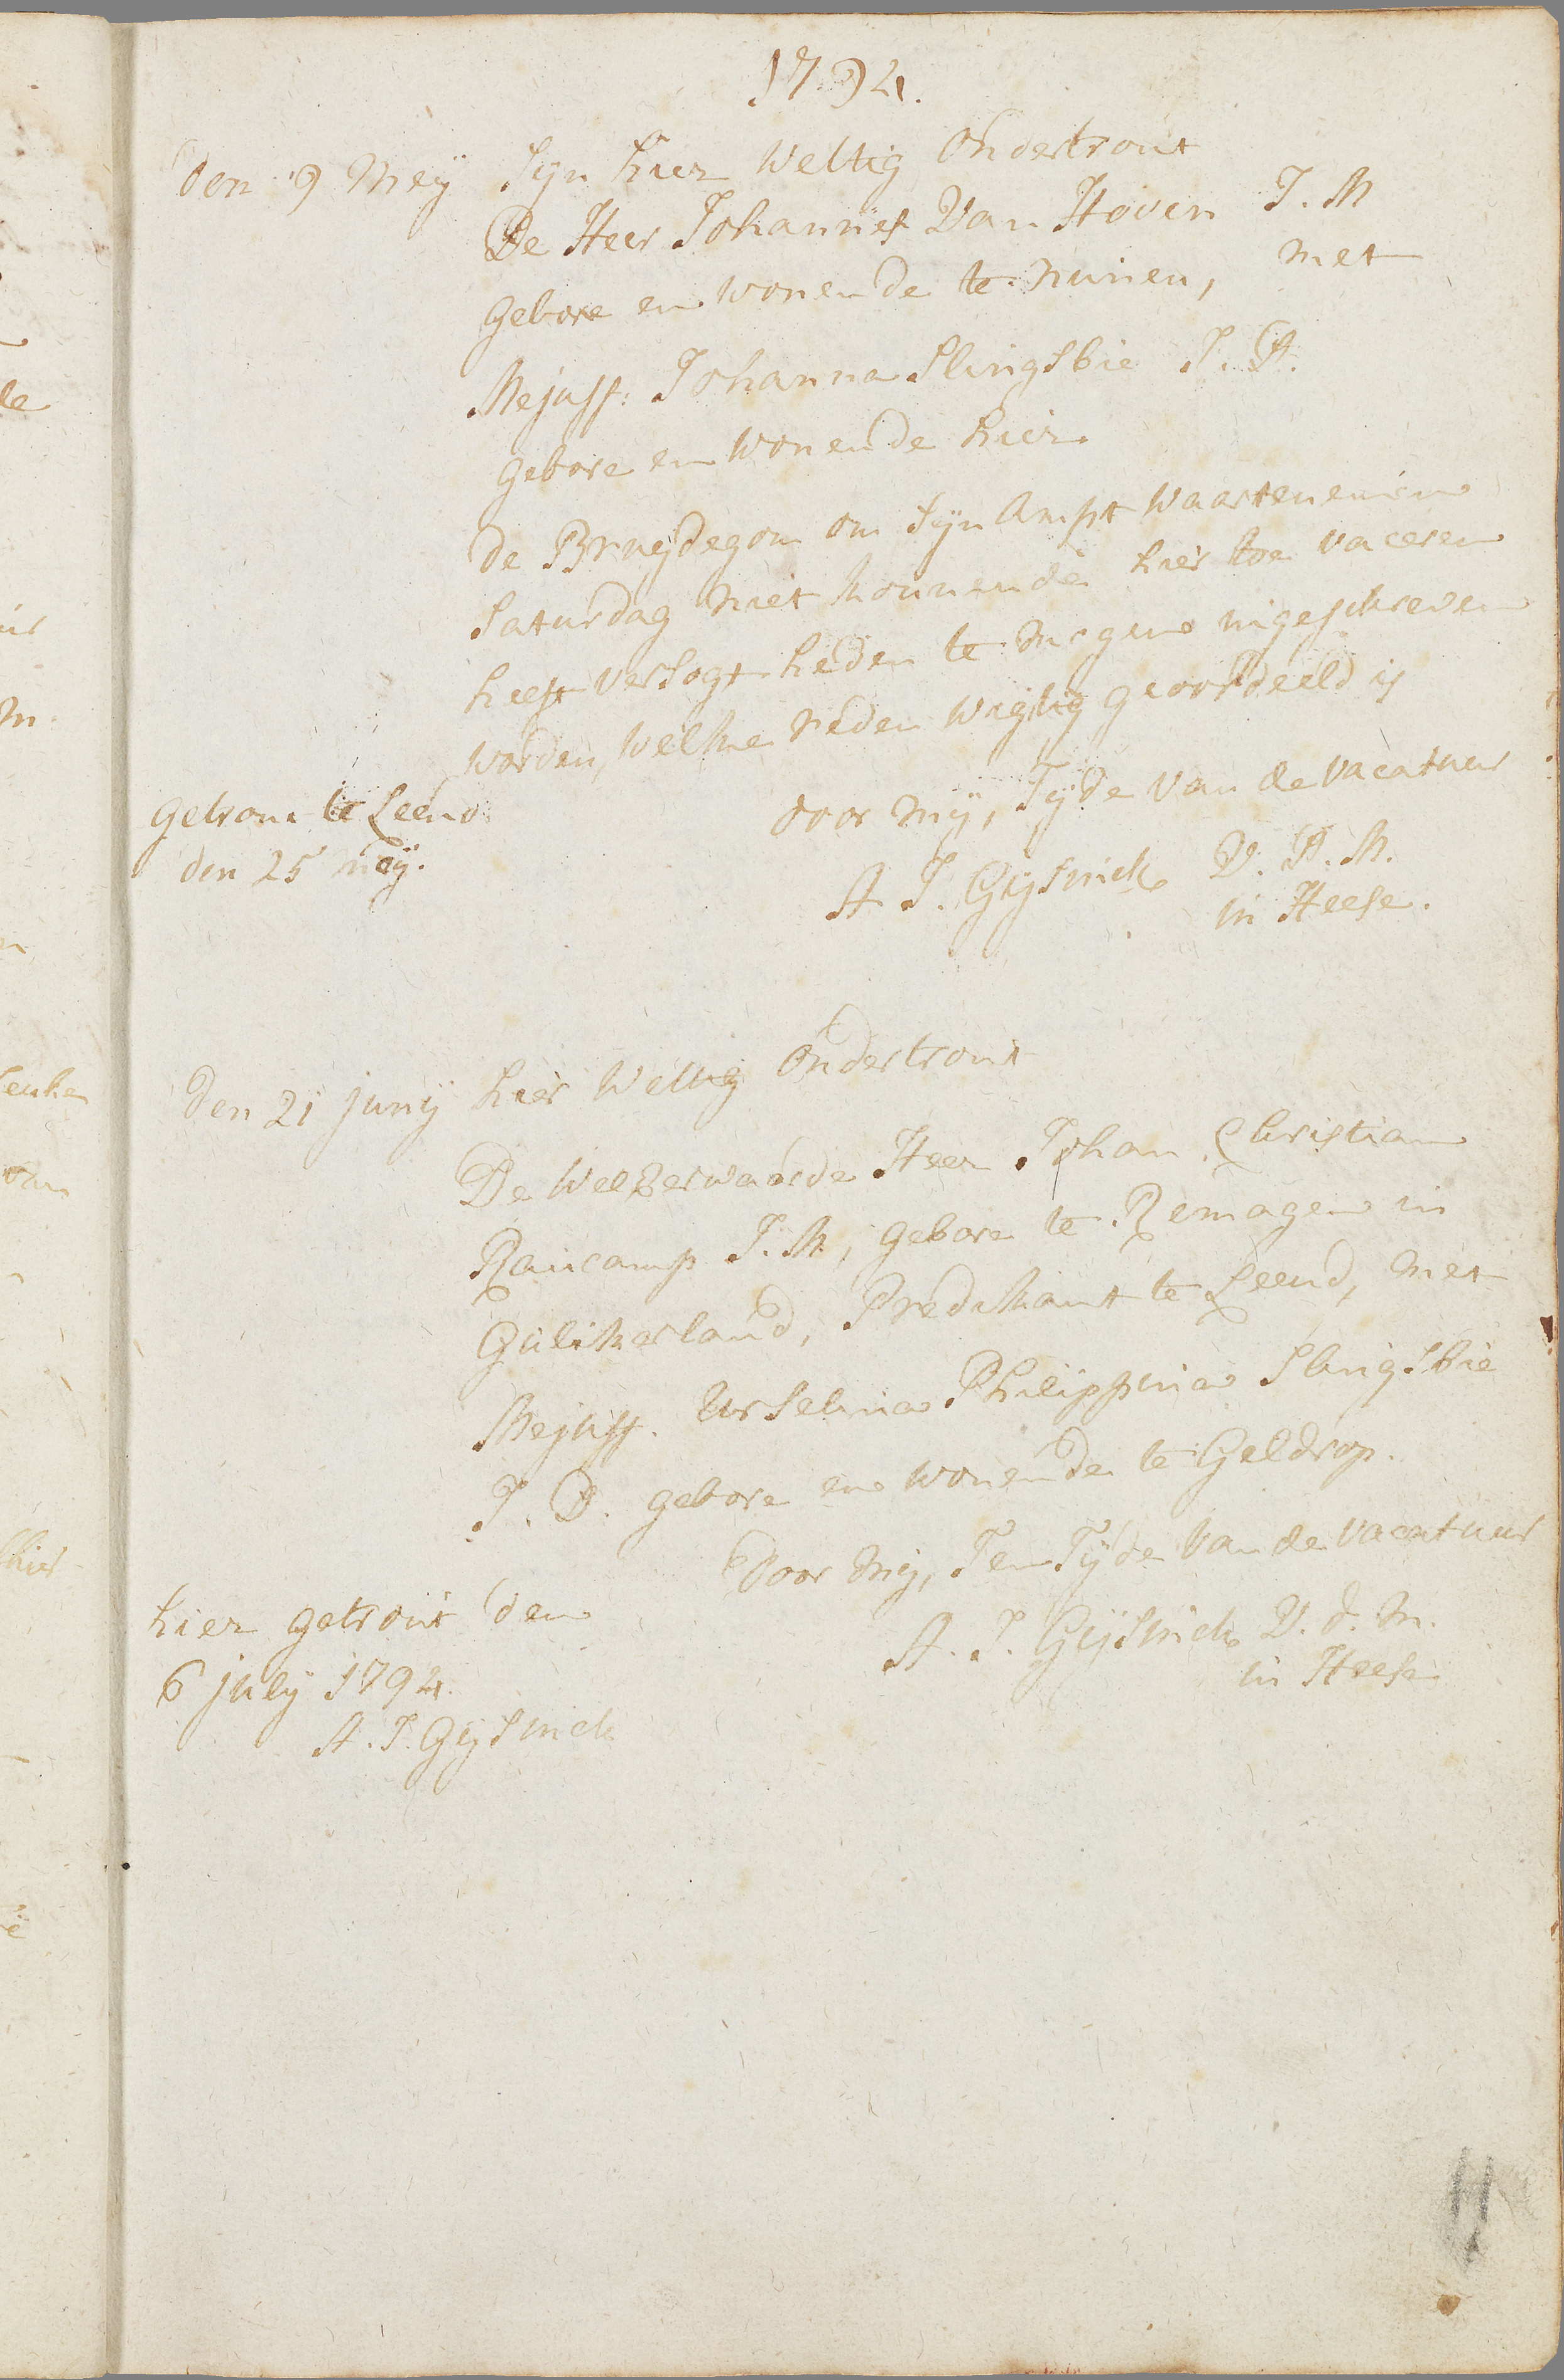 1794.
den 9 Meÿ Sijn hier Wettig Ondertrout
De Heer Johannes Van Hoven J. M
gebore en wonende te Nunen, met
Mejuff: Johanna Slingsbie J. D.
gebore en wonende hier
de Bruÿdegom om Sijn Ampt waartenemen
Saturdag niet konnende hier toe vaceren
heeft versogt heden te mogen ingeschreven
worden, welke reden wigtig geoordeeld is
door mÿ, Tijde van de vacatuur
A J. Gÿsnick V. D. M.
in Heese.
getrout te Leend
den 25 meÿ.
den 21 junÿ hier Wettig Ondertrout
De WelEerwaarde Heer Johan Christiaan
Raucamp J. M, gebore te Remagen in
Gulikerland, Predikant te Leend, met
Mejuff. Urselina Philippina Slingsbie
J. D. gebore en wonende te Geldrop.
Door mij, Ten Tÿde van de vacatuur
A. J. Gÿsnick V. d. M.
in Heese
hier getrout den
6 julÿ 1794.
A. J. Gÿsnick